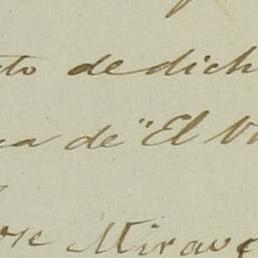 to de dich
ca de "El V
ose Mirav